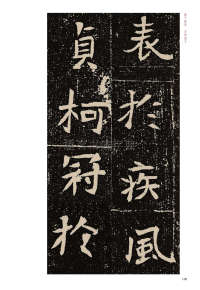 表於疾風
貞柯冠於